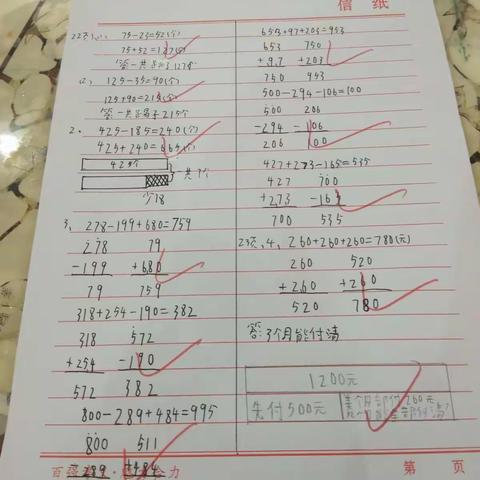 信纸
22页、1、 75-23=52(个)
75+52=127(个)
(2)、 125-35=90(个)
125+90=215(个)
答:一共 215个
2、 425-185=240(个)
425+240=665(个)
425个
一共?个
少18
3、 278-199+680=759
278 79
-199 +680
79 759
318+254-190=382
318 572
+254 -190
572 382
800-289+484=995
800 511
-289 +484
653+97+203=953
653 750
+97 +203
750 953
500-294-106=100
500 206
-294 -106
206 100
427+273-165=535
427 700
+273 -165
700 535
23页、4、260+260+260=780(元)
260 520
+260 +260
520 780
答:3个月能付清
1200元
先付500元
260元
百 力
第 页